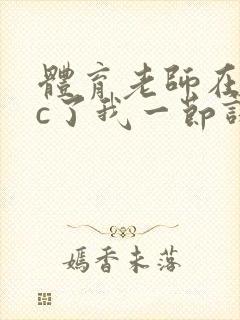 體育老師在
c了我一節
嫣香未落